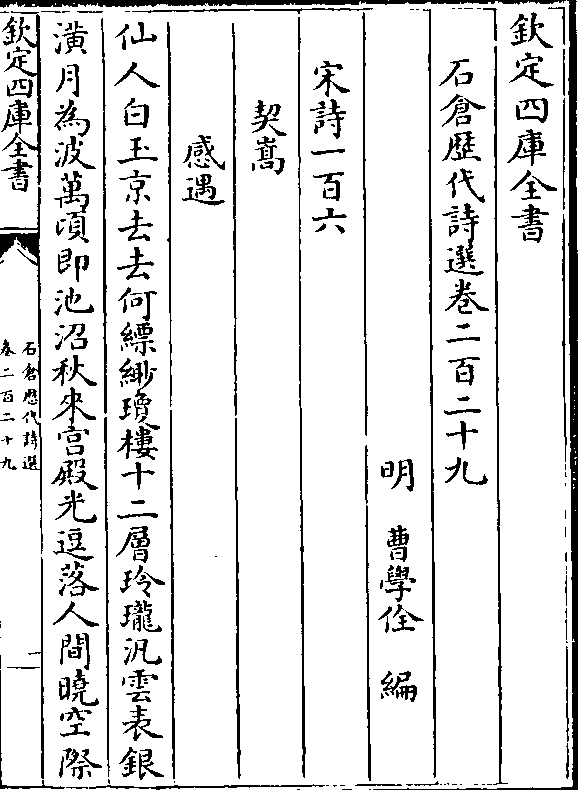 欽定四庫全書
石倉歴代詩選卷二百二十九
明 曹學佺 編
宋詩一百六
契嵩
感遇
仙人白玉京去去何縹緲瓊樓十二層玲瓏汎雲表銀
潢月為波萬頃即池沼秋來宮殿光逗落人間曉空際
欽定四庫全書
石倉歴代詩選
卷二百二十九
一